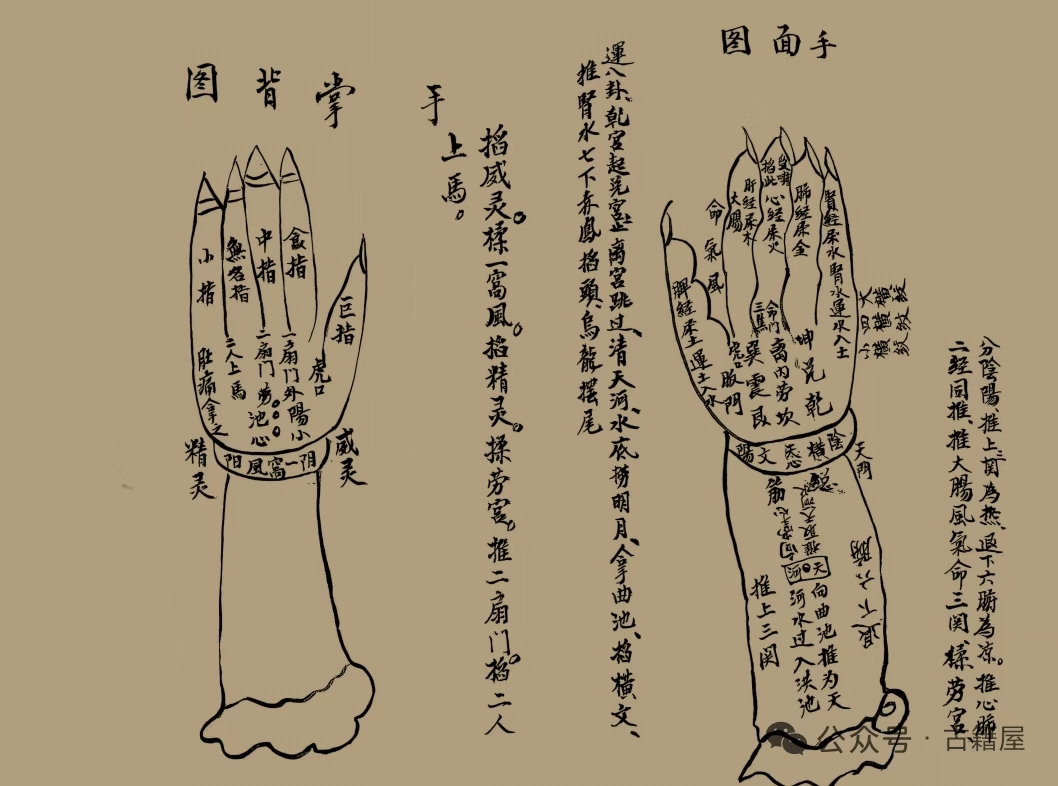 手面图
分陰陽、推上三関為热、退下六腑為凉。推心肺
二经同推、推大腸風氣命三関、揉劳宫、
大横紋
四横紋
小横紋
腎经屬水腎水運水入土
肺经屬金
心经屬火
肝经屬木
大腸
命
氣
風
脾经屬土運土入水
坤
兑
乾
离内劳
坎
巽
震
艮
虎口
板門
陰
横
天心
文
陽
天門
退下六腑
天河
向曲池推为天
河水过入洪池
推上三関
運八卦、乾宫起兑宫止、离宫跳过、清天河水、底捞明月、拿曲池、掐横文、
推腎水七下赤鳳掐頭、烏龍擺尾
手
掐威灵。揉一窩風。掐精灵。揉劳宫。推二扇门。掐二人
上馬。
掌背图
食指
中指
無名指
小指
巨指
虎口
一扇门外陽小
二扇门劳池心
二人上馬
肚痛拿之
威灵
精灵
阴一窩風阳
公众号·古籍屋